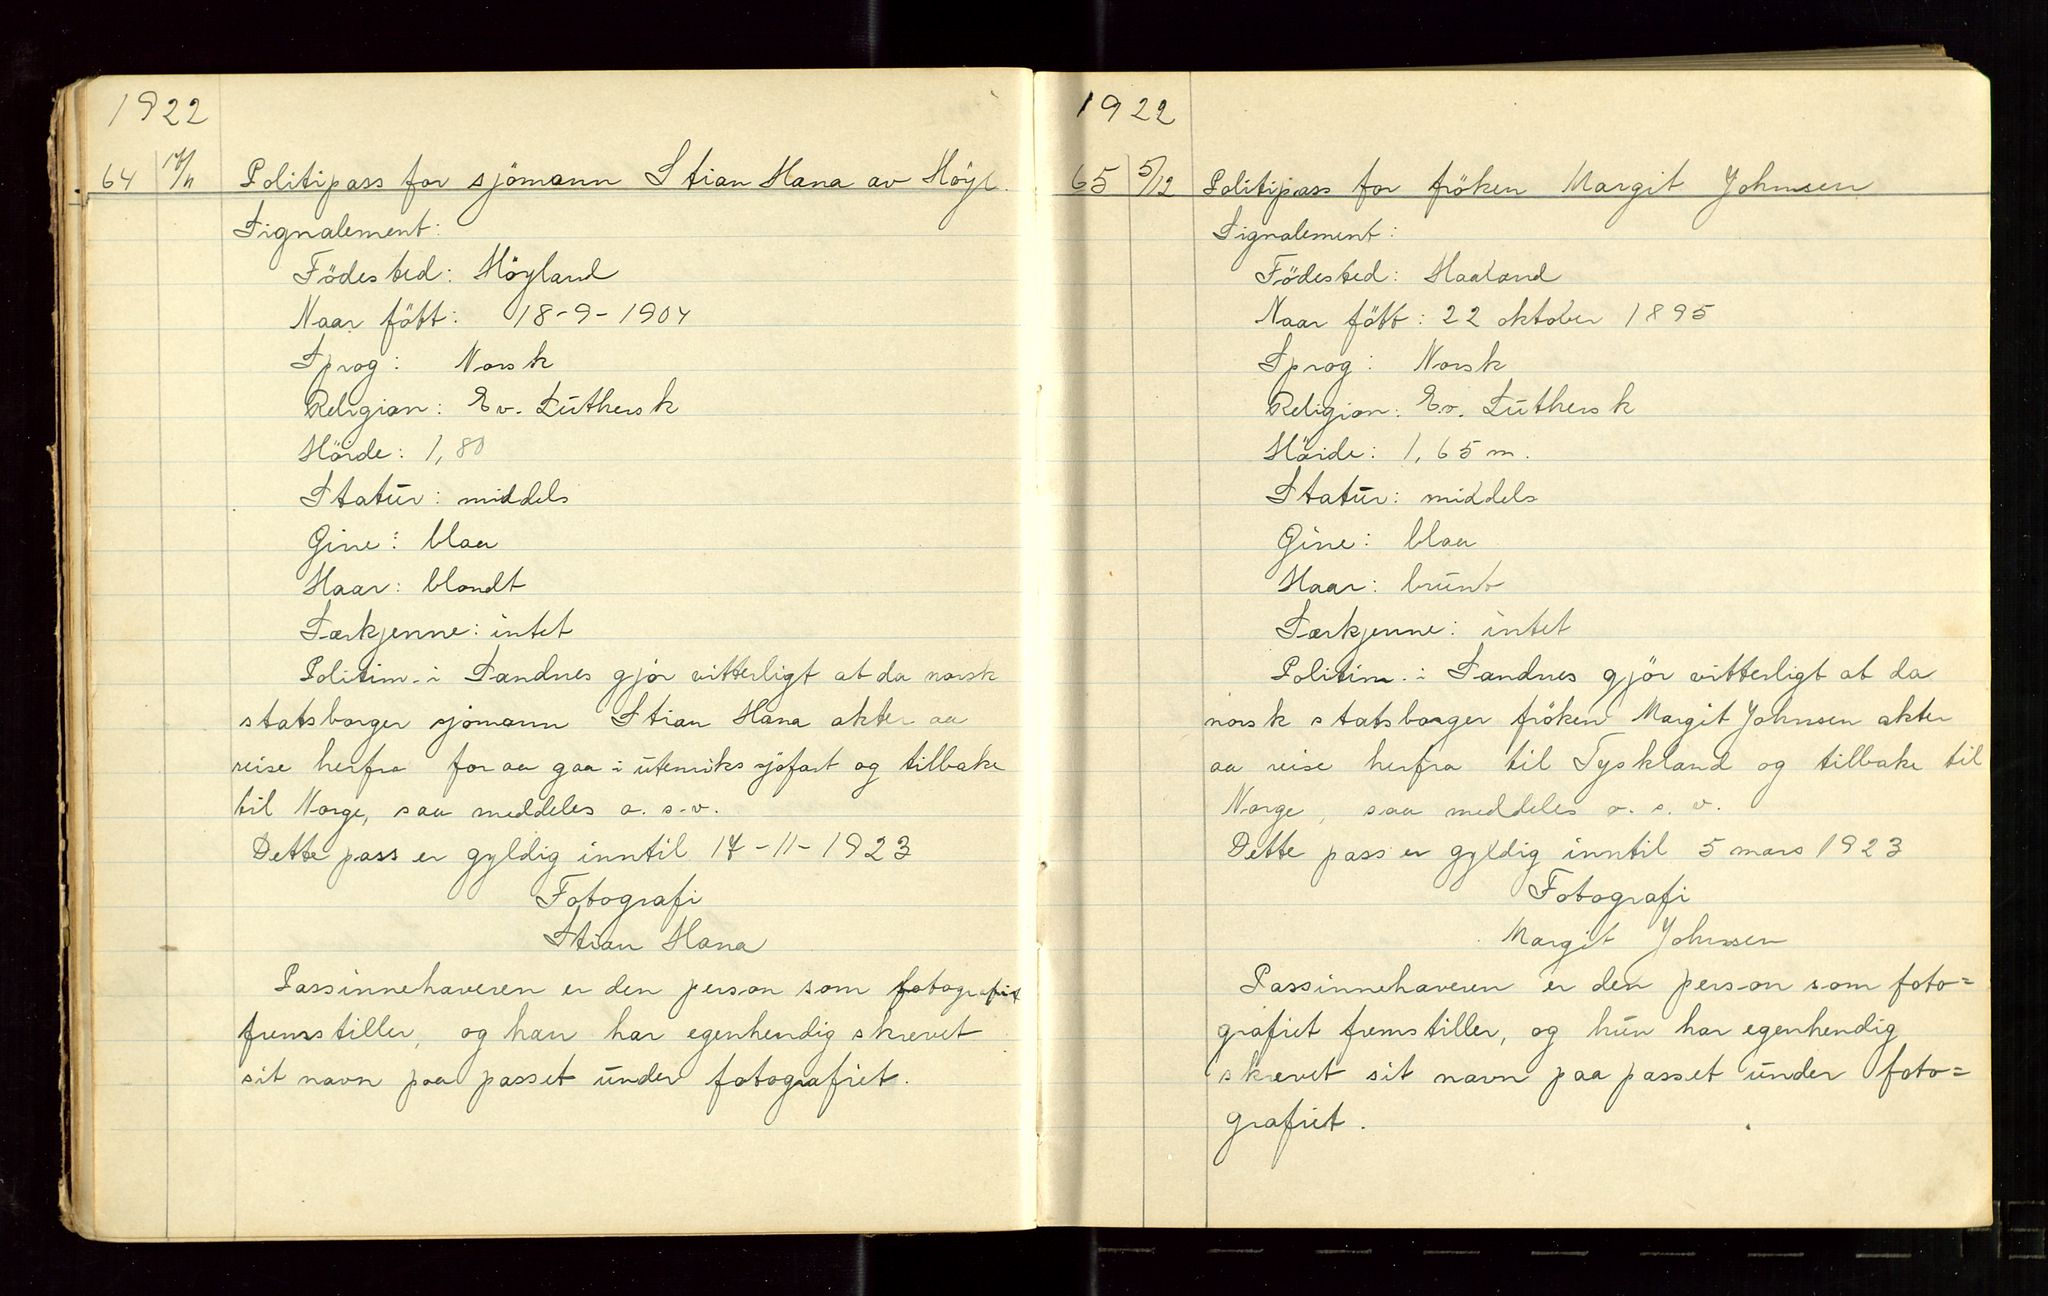 1922
64 17/11 Politipass for sjömann Stian Hana av Höyl.
Signalement:
Födested: Höyland
Naar fött: 18-9-1904
Sprog: Norsk
Religion: Ev. Luthersk
Höide: 1,80
Statur: middels
Öine: blaa
Haar: blondt
Særkjenne: intet
Politim. i Sandnes gjör vitterligt at da norsk
statsborger sjömann Stian Hana akter aa
reise herfra for aa gaa i utenriks sjöfart og tilbake
til Norge, saa meddeles o. s. v.
Dette pass er gyldig inntil 17-11-1923
Fotografi
Stian Hana
Passinnehaveren er den person som fotografiet
fremstiller, og han har egenhendig skrevet
sit navn paa passet under fotografiet.
1922
65 5/12 Politipass for fröken Margit Johnsen
Signalement:
Födested: Haaland
Naar fött: 22 oktober 1895
Sprog: Norsk
Religion: Ev. Luthersk
Höide: 1,65 m.
Statur: middels
Öine: blaa
Haar: brunt
Særkjenne: intet
Politim. i Sandnes gjör vitterligt at da
norsk statsborger fröken Margit Johnsen akter
aa reise herfra til Tyskland og tilbake til
Norge, saa meddeles o. s. v.
Dette pass er gyldig inntil 5 mars 1923
Fotografi
Margit Johnsen
Passinnehaveren er den person som foto=
grafiet fremstiller, og hun har egenhendig
skrevet sit navn paa passet under foto=
grafiet.